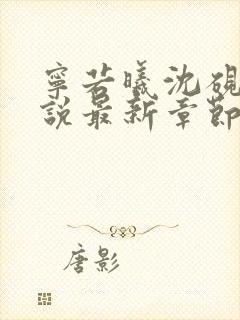 寧若曦沈硯
說最新章節
唐影